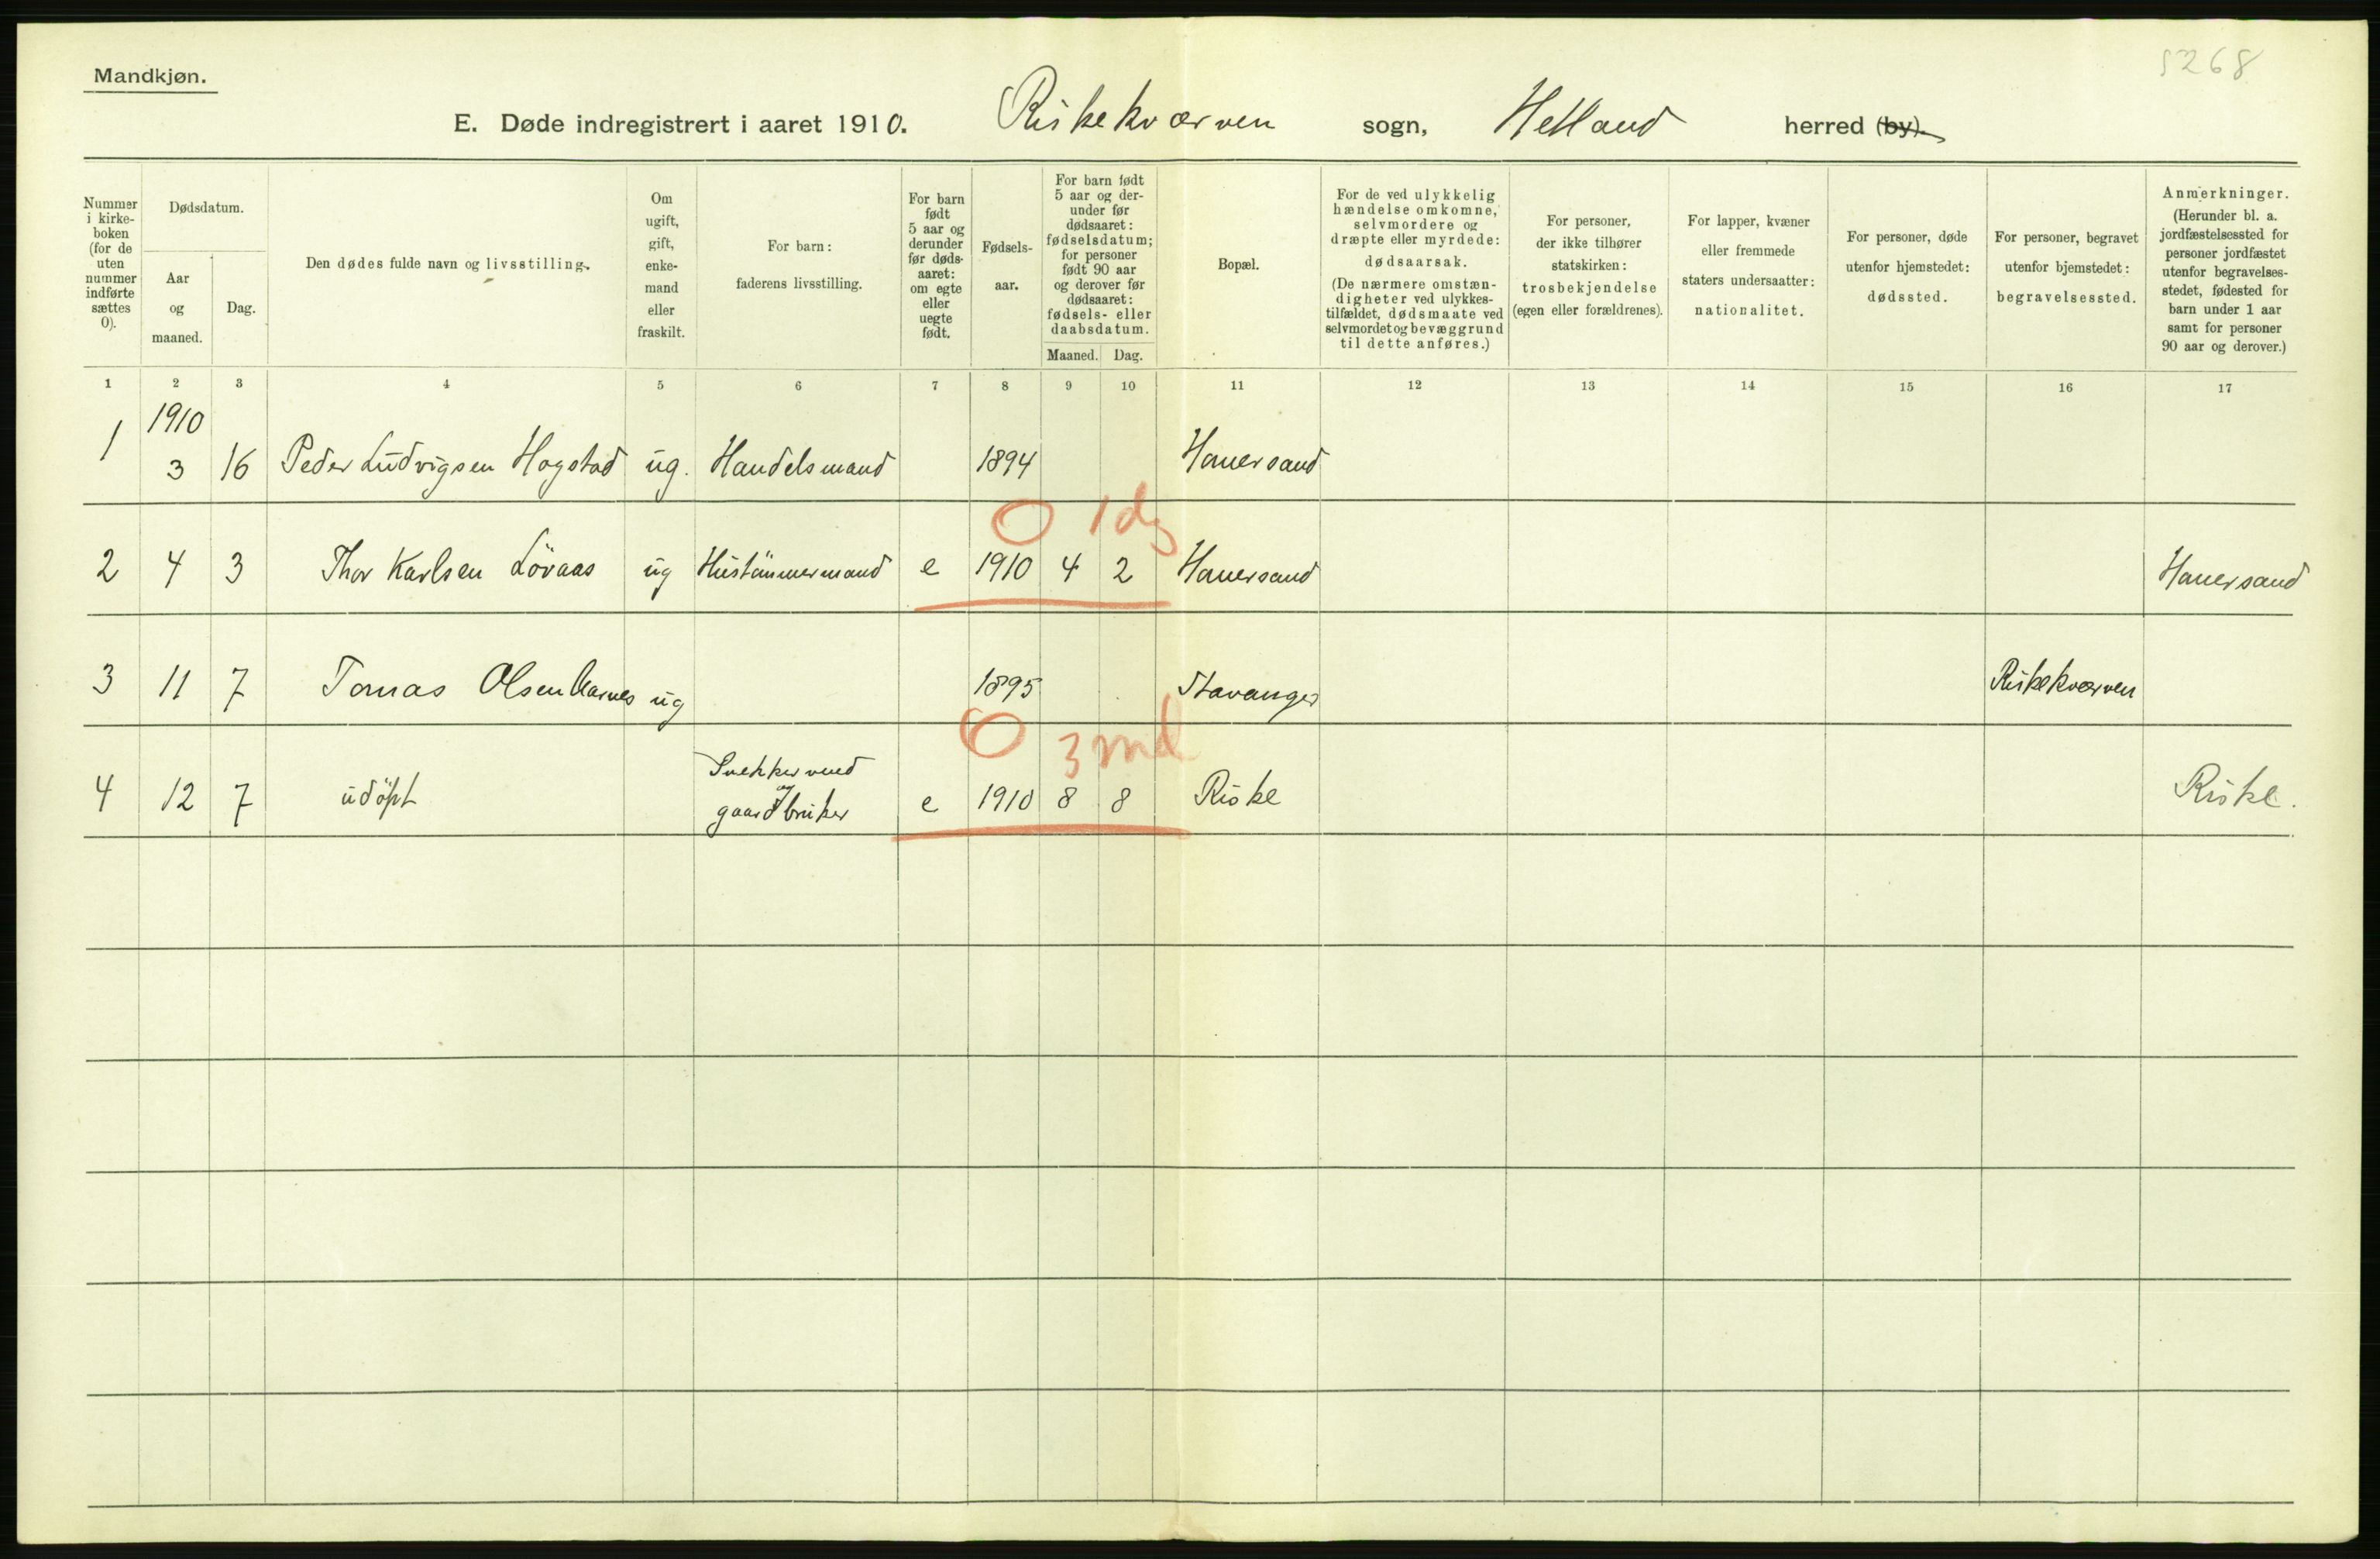 5268
Mandkjøn.
E. Døde indregistrert i aaret 1910. Riskekværven sogn, Hetland herred (by).
Nummer i kirke- boken (for de uten nummer indførte sættes 0).
Dødsdatum.
Aar og maaned.
Dag.
Den dødes fulde navn og livsstilling.
Om ugift, gift, enke- mand eller fraskilt.
For barn: faderens livsstilling.
For barn født 5 aar og derunder før døds- aaret: om egte eller uegte født.
Fødsels- aar.
For barn født 5 aar og der- under før dødsaaret: fødselsdatum; for personer født 90 aar og derover før dødsaaret: fødsels- eller daabsdatum.
Maaned. Dag.
Bopæl.
For de ved ulykkelig hændelse omkomne, selvmordere og dræpte eller myrdede: dødsaarsak. (De nærmere omstæn- digheter ved ulykkes- tilfældet, dødsmaate ved selvmordet og bevæggrund til dette anføres.)
For personer, der ikke tilhører statskirken: trosbekjendelse (egen eller forældrenes).
For lapper, kvæner eller fremmede staters undersaatter: nationalitet.
For personer, døde utenfor hjemstedet: dødssted.
For personer, begravet utenfor bjemstedet: begravelsessted.
Anmerkninger. (Herunder bl. a. jordfæstelsessted for personer jordfæstet utenfor begravelses- stedet, fødested for barn under 1 aar samt for personer 90 aar og derover.)
1 2 3 4 5 6 7 8 9 10 11 12 13 14 15 16 17
1910
1 3 16 Peder Ludvigsen Hogstad ug. Handelsmand 1894 Hauersand
0 1 dg
2 4 3 Thor Karlsen Lövaas ug Hustömmermand e 1910 4 2 Hauersand Hauersand
3 11 7 Tomas Olsen ug 1895 Stavanger Riskekværven
0 3 md
Snekkersvend
4 12 7 udöpt og gaardbruker e 1910 8 8 Riske Riske.